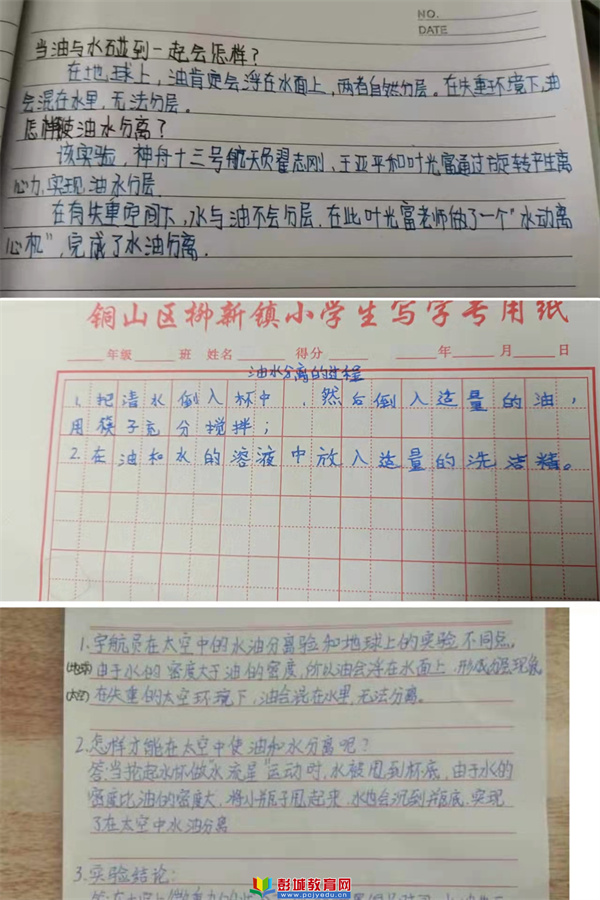 NO.
DATE
当油与水碰到一起会怎样?
在地球上,油肯定会浮在水面上,两者自然分层。在失重环境下,油
会混在水里,无法分层。
怎样使油水分离?
该实验,神舟十三号航天员翟志刚、王亚平和叶光富通过旋转产生离
心力,实现油水分层.
在有失重空间下,水与油不会分层.在此叶光富老师做了一个"水动离
心机",完成了水油分离.
铜山区柳新镇小学生写字专用纸
年级 班 姓名 得分 年 月 日
油水分离的过程
1、把清水倒入杯中,然后倒入适量的油,
用筷子充分搅拌;
2.在油和水的溶液中放入适量的洗洁精。
1.宇航员在太空中的水油分离验和地球上的实验不同点。
(地球)由于水的密度大于油的密度,所以油会浮在水面上,形成分层现象
(太空)在失重的太空环境下,油会混在水里,无法分离。
2.怎样才能在太空中使油和水分离呢?
答:当抡起水杯做"水流星"运动时,水被甩到杯底,由于水的
密度比油的密度大,将小瓶子甩起来,水也会沉到瓶底.实现
了在太空中水油分离
3.实验结论:
彭城教育网
www.pcjyedu.cn